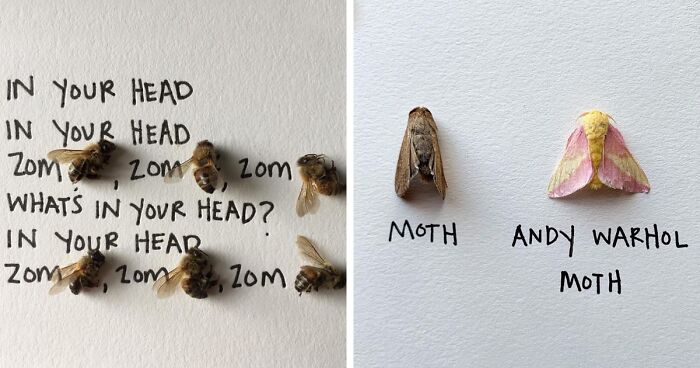 IN YOUR HEAD
IN YOUR HEAD
ZOM, ZOM, ZOM
WHAT'S IN YOUR HEAD?
IN YOUR HEAD
ZOM, ZOM, ZOM
MOTH
ANDY WARHOL
MOTH